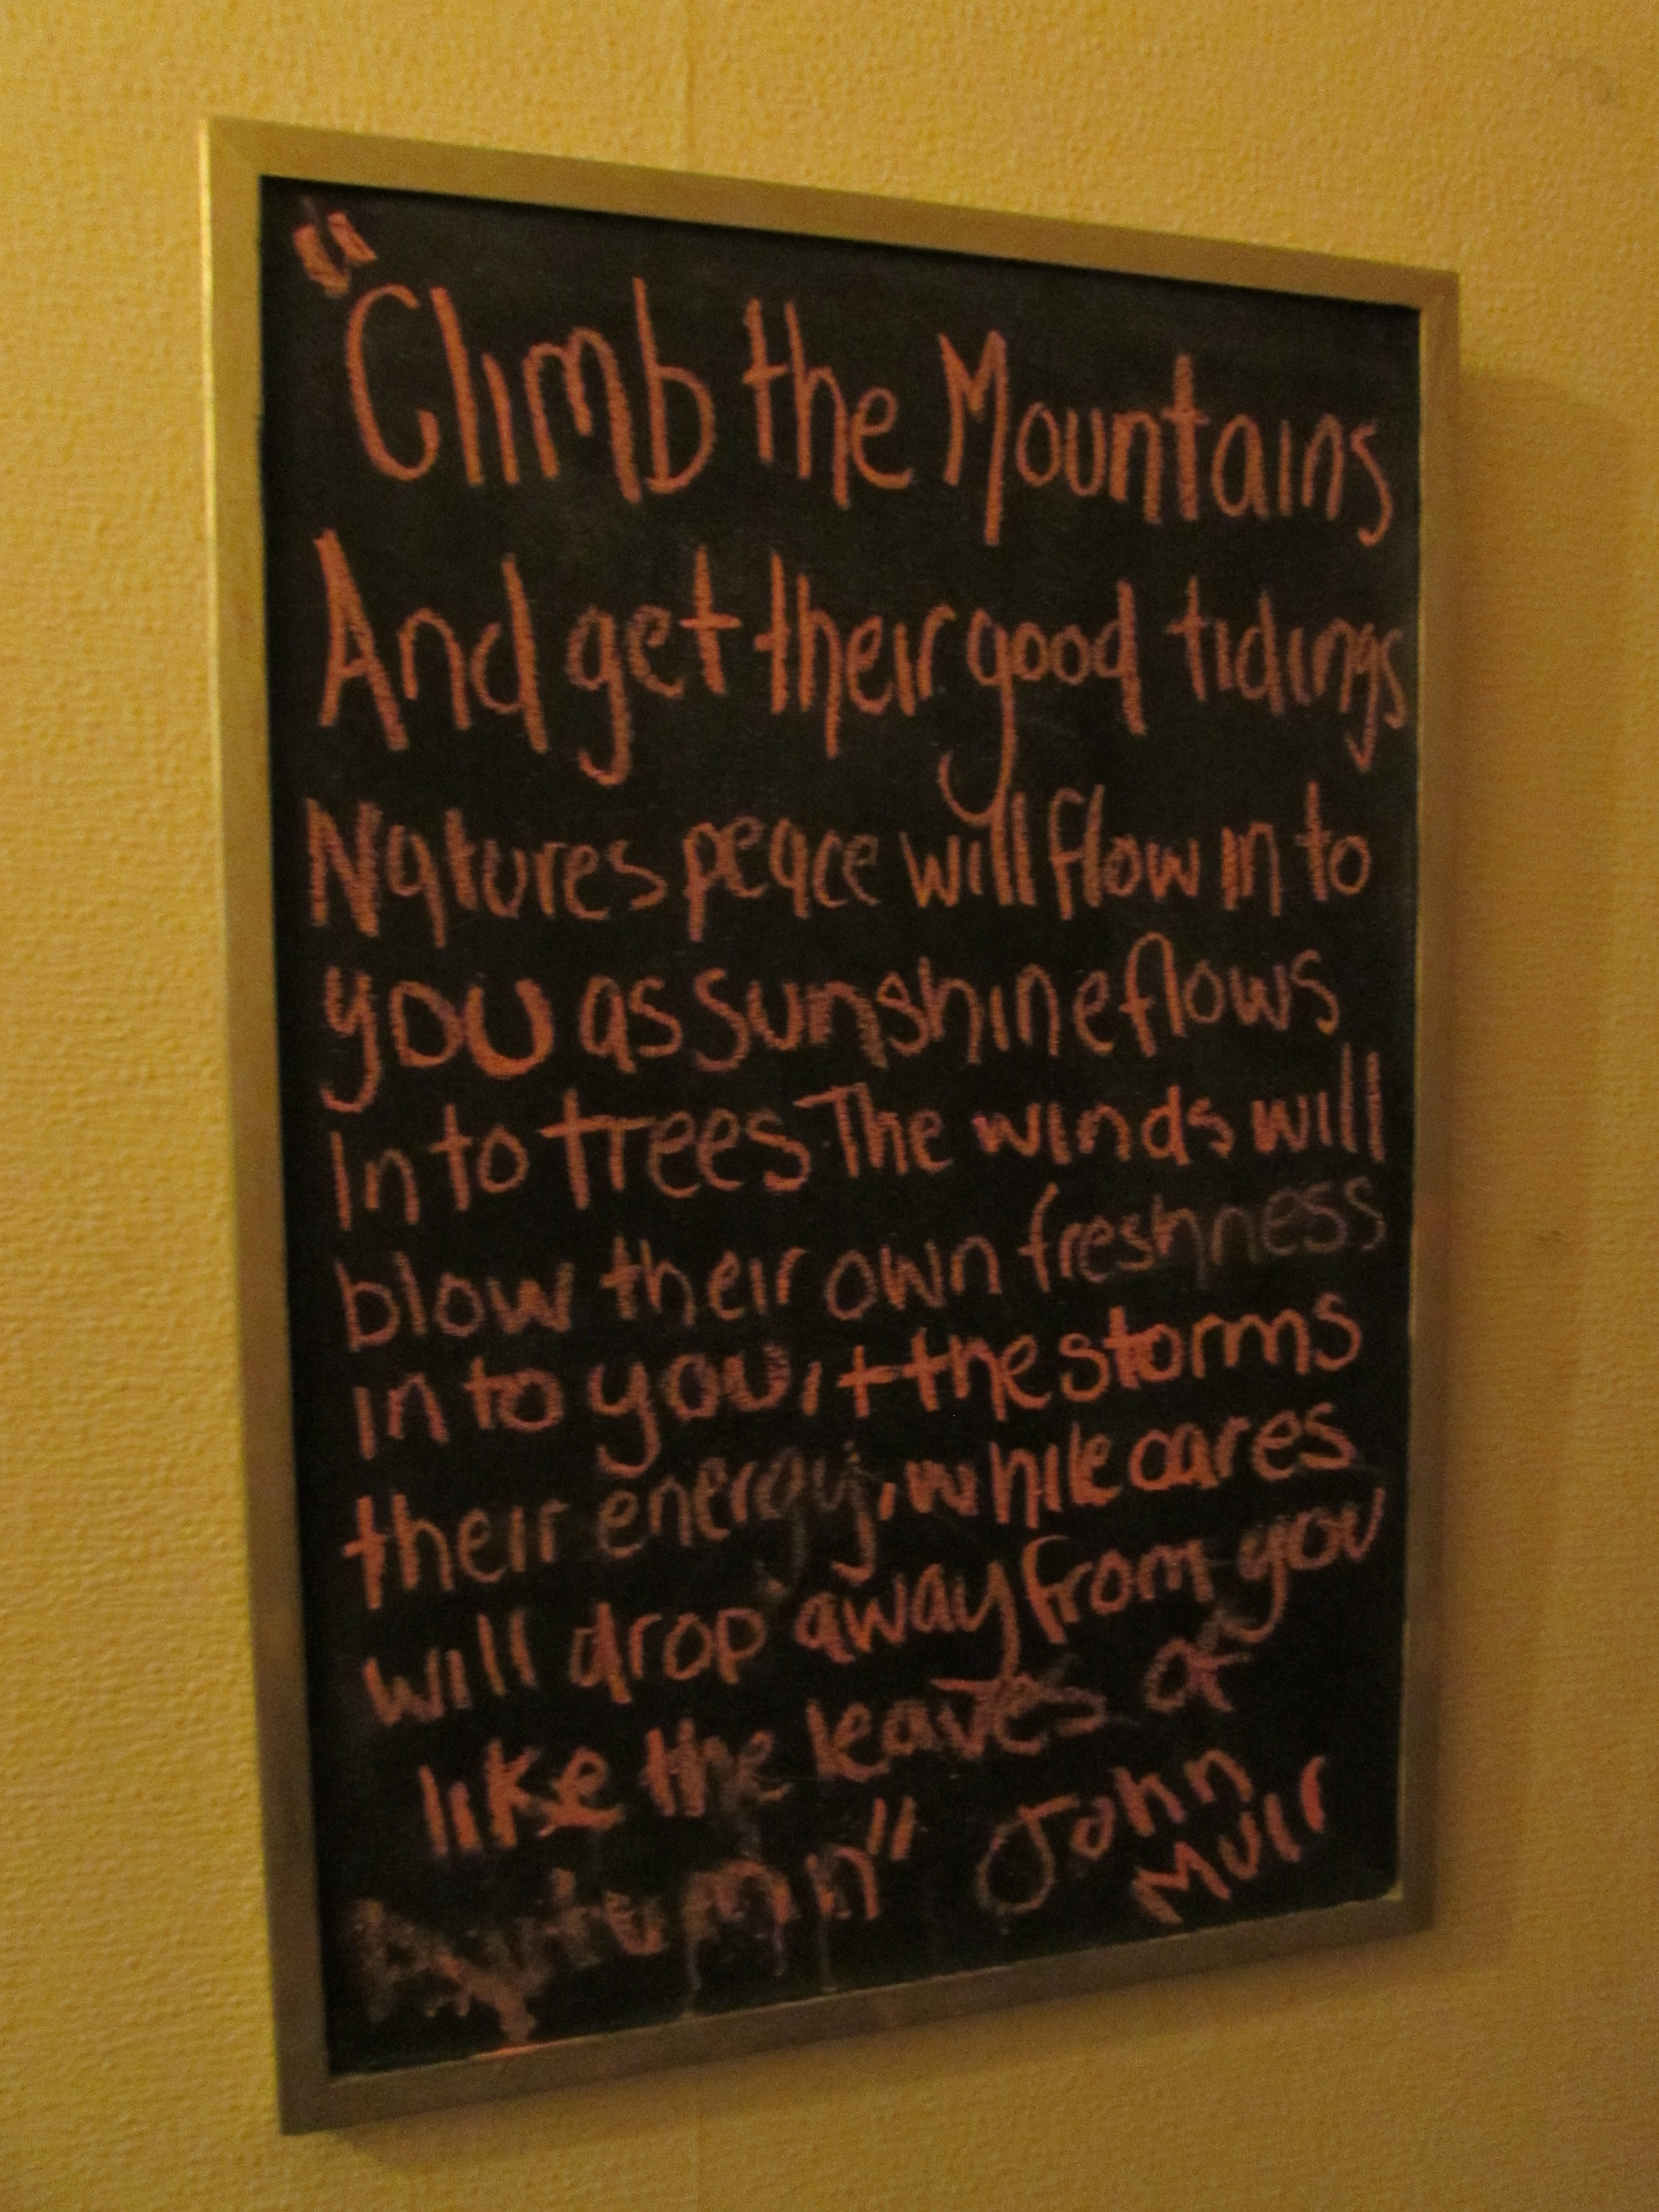 "Climb the Mountains
And get their good tidings
Natures peace will flow in to
you as sunshine flows
In to trees The winds will
blow their own freshness
in to you, + the storms
their energy, while cares
will drop away from you
like the leaves of
Autumn" John
Muir